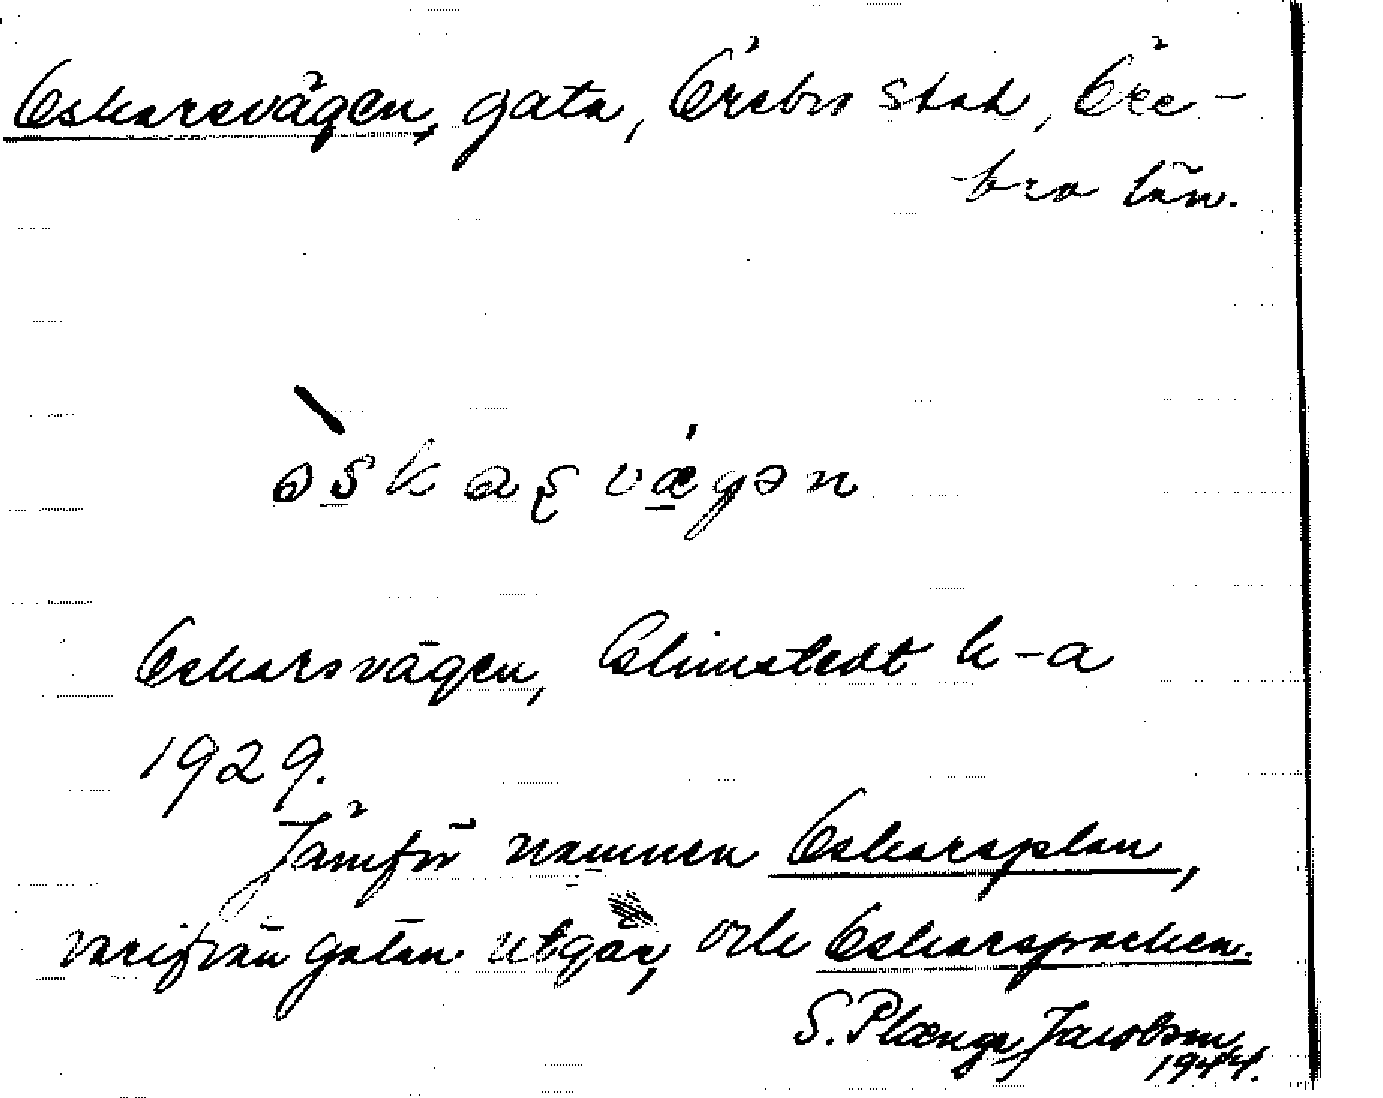 Oskarsvägen, gata, Örebro stad, Öre-
bro län.
oskaʂvægən
Oskarsvägen, Elimstedt k-a
1929.
Jämför namnen Oskarsplan,
varifrån gatan utgår, och Oskarsparken.
S. Plænge Jacobson
1944.